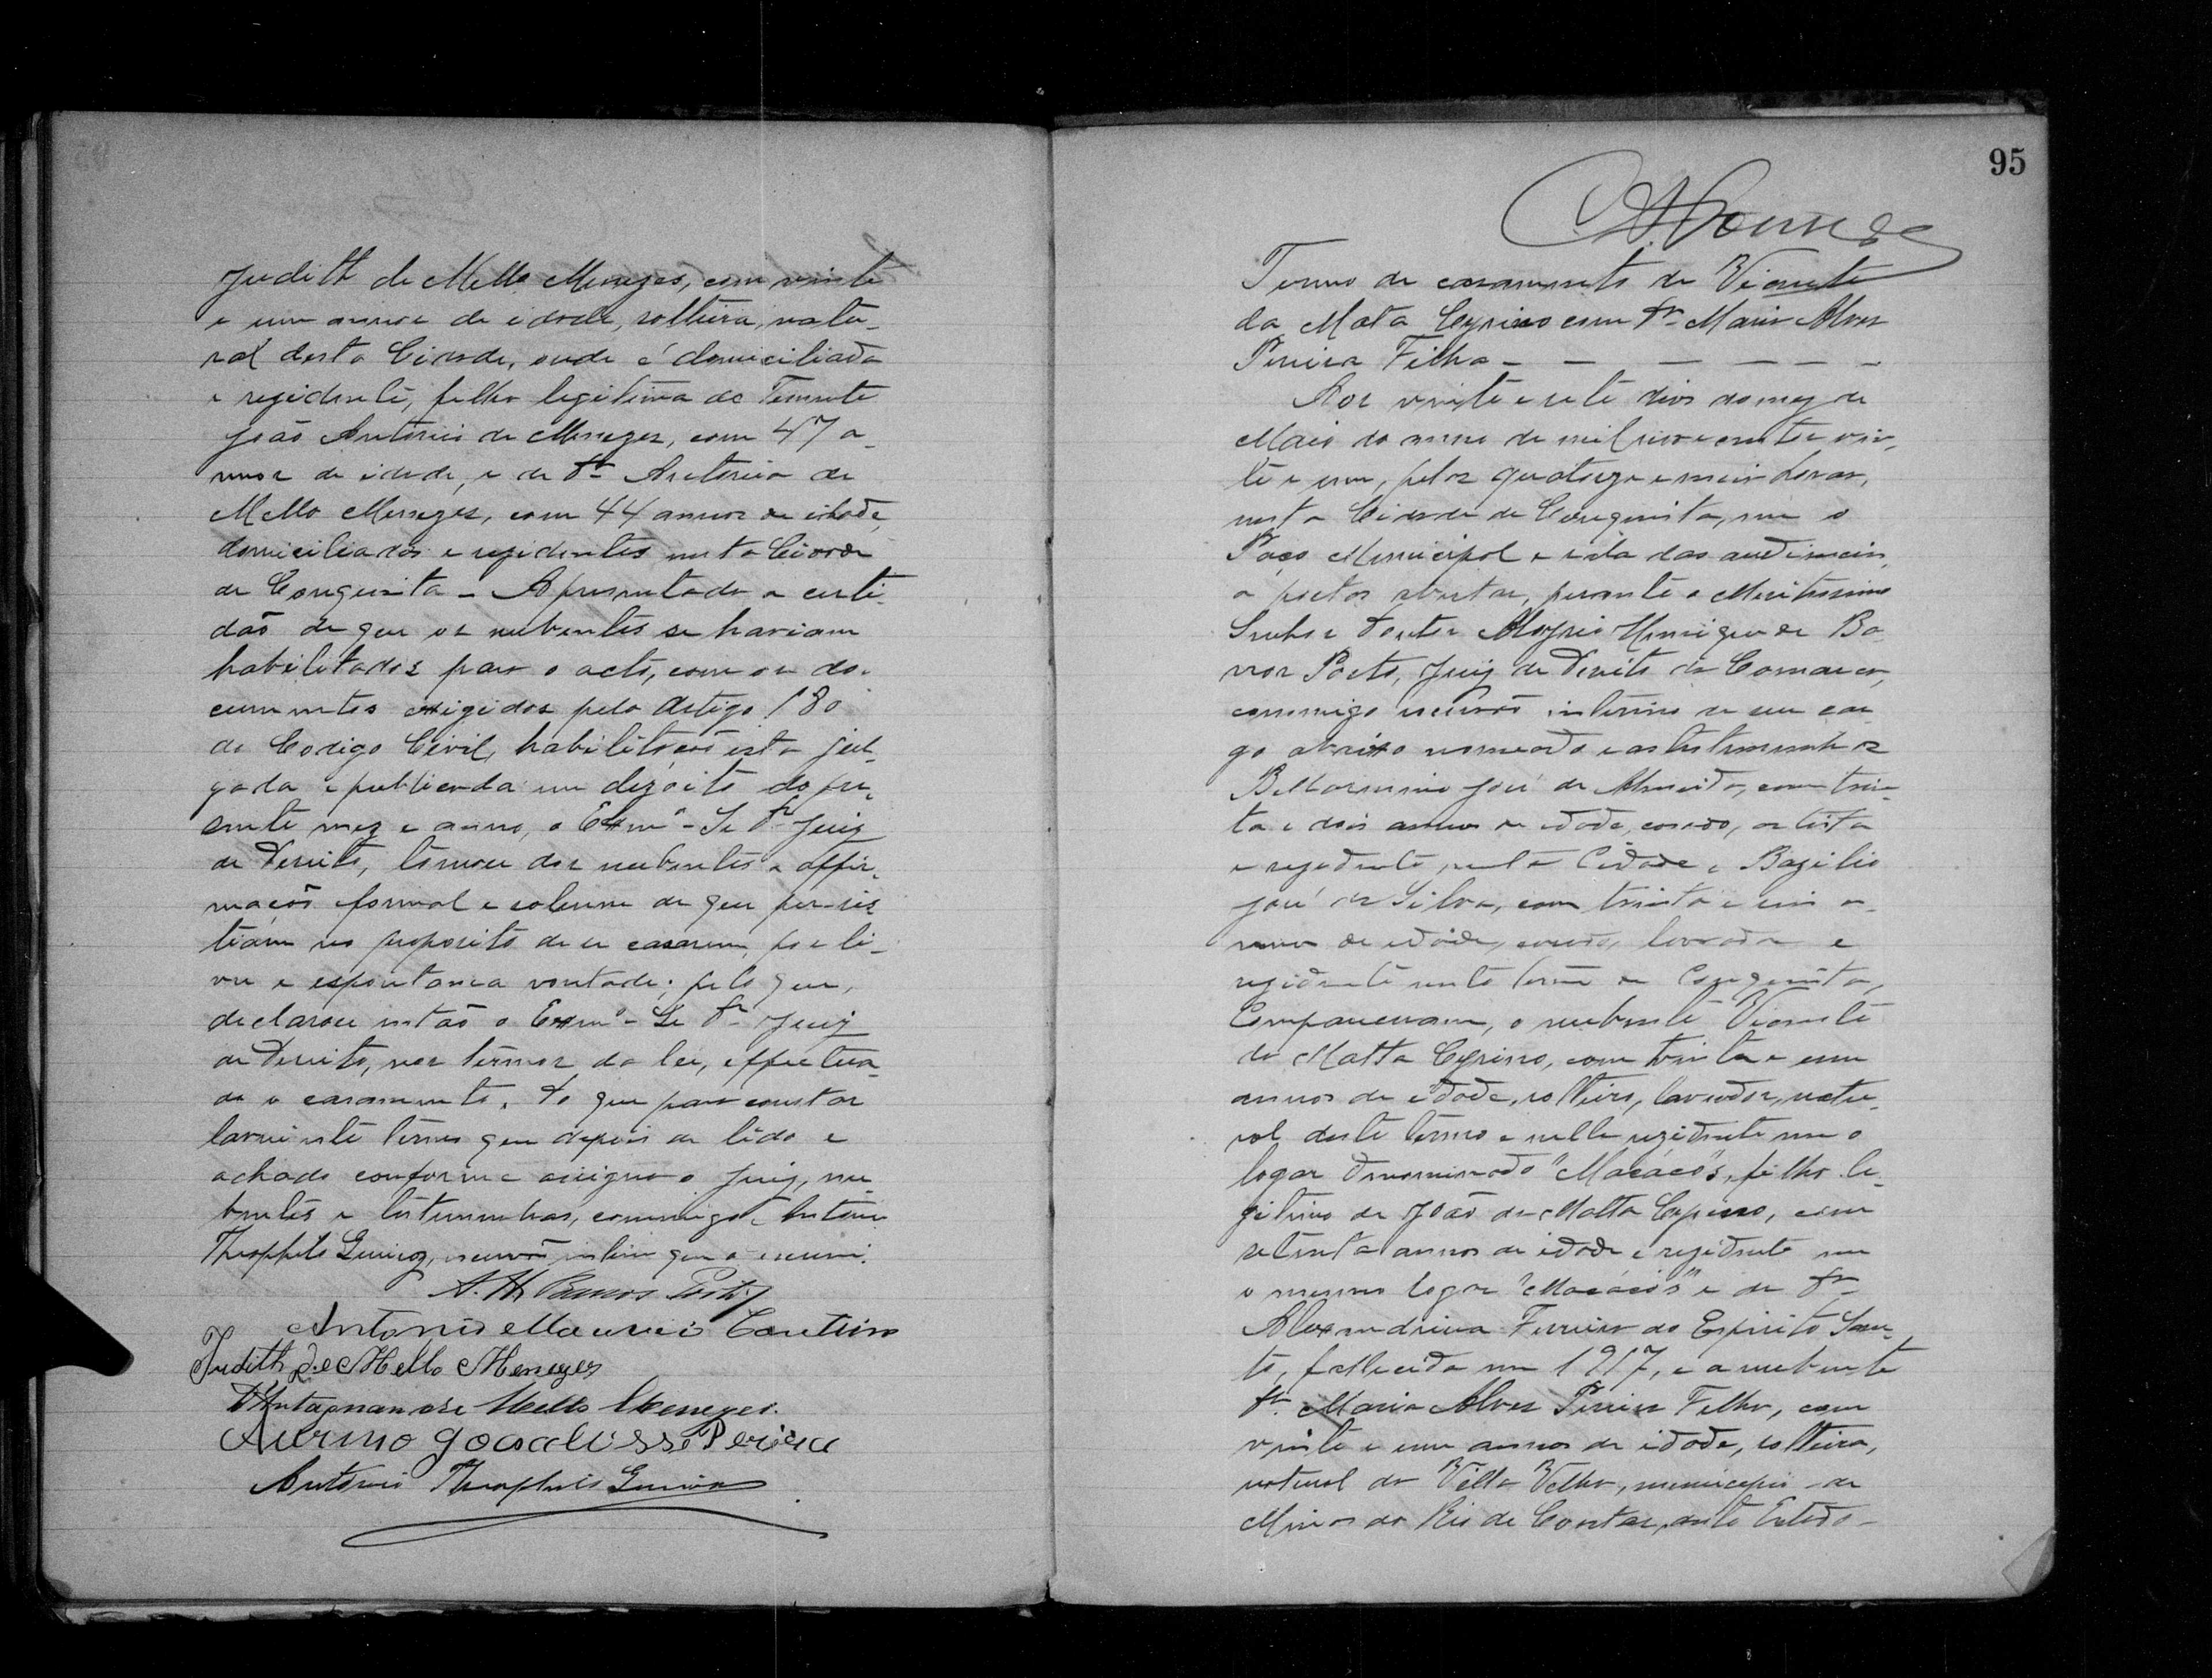 Judith de Mello Menezes, com vinte
e um annos de edade, solteira, natu-
ral desta Cidade, onde é domiciliada
e rezidente, filha legitima do Tenente
João Antonio de Menezes, com 47 a-
nnos de idade, e de Da Antonia de
Mello Menezes, com 44 annos de idade,
domiciliados e rezidentes nesta Cidade
de Conquista - Apresentada a certi-
dão de que os nubentes se haviam
habilitados para o acto, com os do-
cumentos exigidos pelo Artigo 180
do Codigo Civil, habilitação esta jul-
gada e publicada em dezoito do pre-
sente mez e anno, o Exmo Sr Dr Juiz
de Direito, tomou dos nubentes a affir-
mação formal e solemne de que persis-
tiam no proposito de se casarem, por li-
vre e espontanea vontade; pelo que,
declarou então o Exmo Sr Dr Juiz
de Direito, nos termos da lei, effectua-
do o casamento. Do que para constar
lavrei este termo que depois de lido e
achado conforme assigna o Juiz, nu-
bentes e testemunhas, commigo Antonio
Theophilo escrivão interino que o escrevi.
A. H. Barros Porto
Antonio Mauricio Coutinho
Judith de Mello Menezes
Mello Menezes.
Pereira
Antonio Theophilo
95
Termo de casamento de Vicente
da Mata Cyprino com Da Maria Alves
Pereira Filha - - - - - -
Aos vinte e sete dias do mez de
Maio do anno de mil novecentos vin-
te e um, pelas quatorze e meia horas,
nesta Cidade de Conquista, em o
Paço Municipal e sala das audiencias,
a portas abertas, perante o Meritissimo
Senhor Doutor Henrique de Ba-
rros Porto, Juiz de Direito da Comarca,
commigo escrivão interino de seu car-
go abaixo nomeado e as testemunhas
Bellarmino José de Almeida, com trin-
ta e dois annos de edade, casado, artista
e rezidente nesta Cidade e Bazilio
José da Silva, com trinta e seis a-
nnos de edade, casado, lavrador e
rezidente neste termo de Conquista,
Compareceram, o nubente Vicente
da Matta Cyprino, com trinta e um
annos de edade, solteiro, lavrador, natu-
ral deste termo e nelle rezidente em o
logar denominado "Macácos", filho le-
gitimo de João da Matta Cyprino, com
setenta annos de idade e rezidente em
o mesmo logar "Macácos" e de Da
Alexandrina Ferreira do Espirito San-
to, fallecida em 1917, e a nubente
Da Maria Alves Pereira Filha, com
vinte e um annos de idade, solteira,
natural da Villa Velha, municipio de
Minas do Rio de Contas, deste Estado -